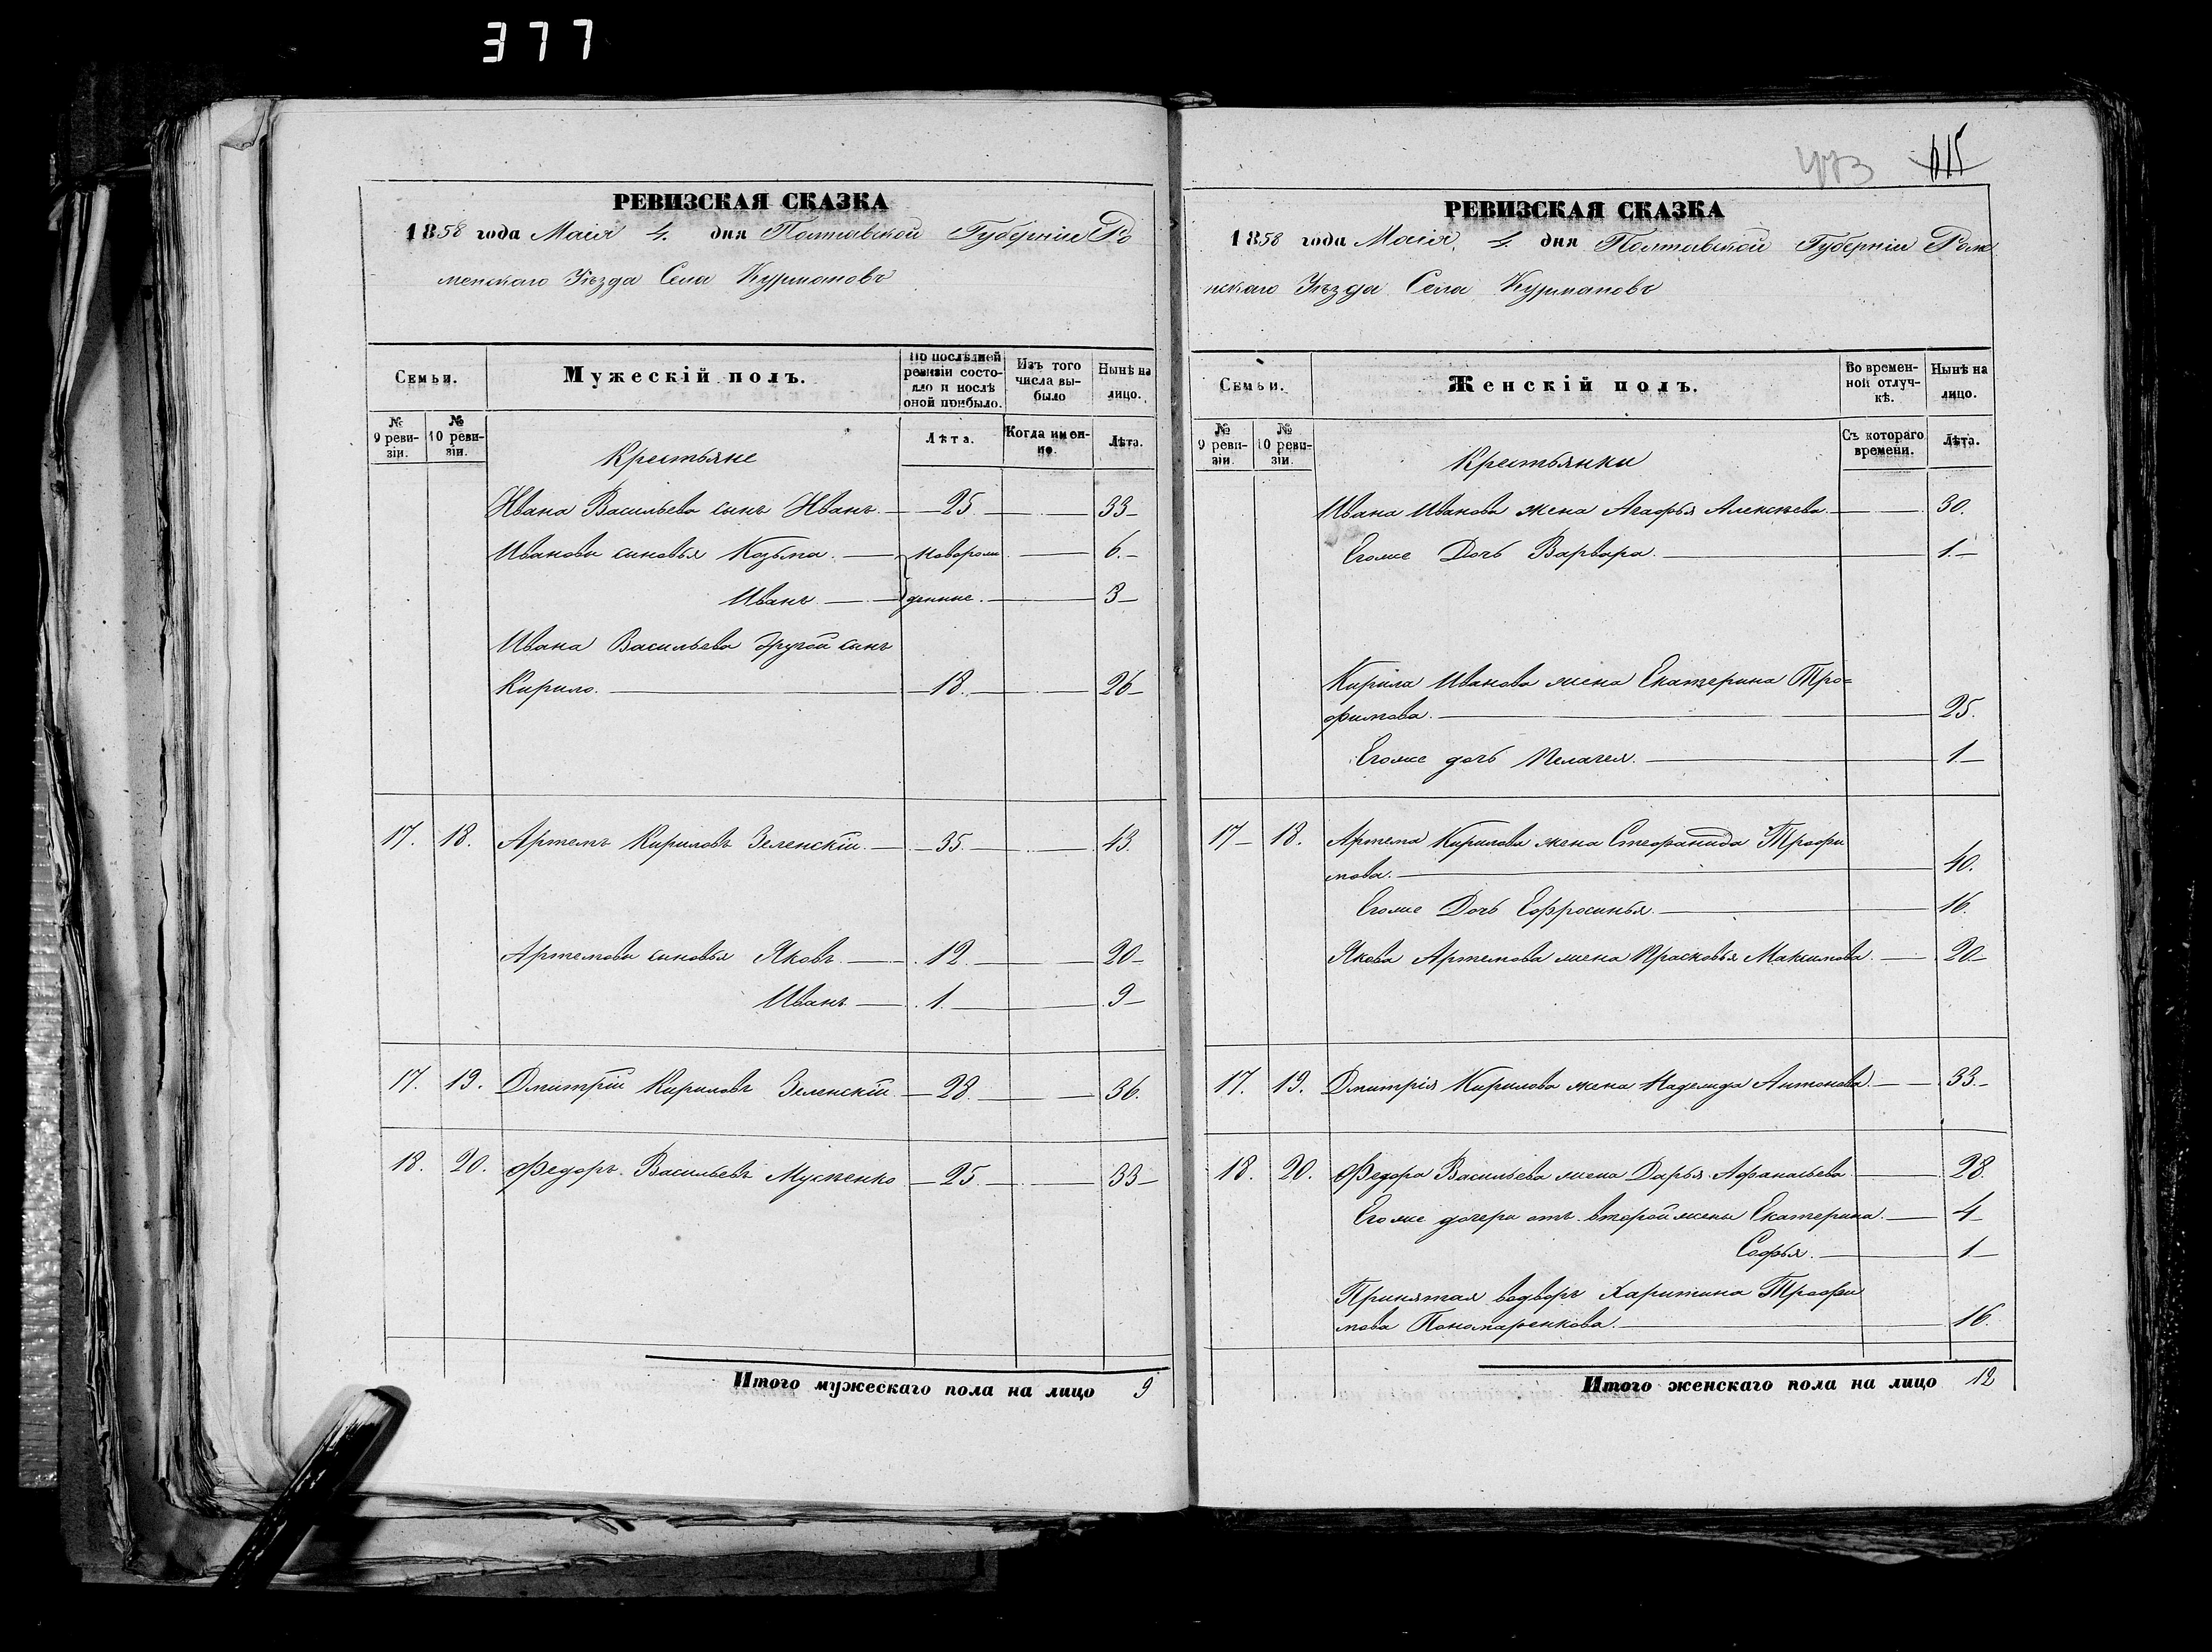 377
РЕВИЗСКАЯ СКАЗКА
1858 года Маія 4. дня Полтавской Губерніи Ро
менскаго Уѣзда Села Курмановъ
Семьи.
Мужескій полъ.
По послѣдней ревизіи состояло и послѣ оной прибыло.
Изъ того числа выбыло
Нынѣ на лицо.
№ 9 ревизіи.
№ 10 ревизіи.
Лѣта.
Когда именно.
Лѣта.
Крестьяне
Ивана Васильева сынъ Иванъ. 25 33
Ивановы сыновья Козьма. новорож 6.
Иванъ денные. 3
Ивана Васильева другой сынъ
Кирило. 18. 26
17. 18. Артемъ Кириловъ Зеленскій 35. 43.
Артемовы сыновья Яковъ. 12. 20
Иванъ 1. 9
17. 19. Дмитрій Кириловъ Зеленскій 28. 36.
18. 20. Федоръ Васильевъ Мусѣенко 25. 33
Итого мужескаго пола на лицо 9
473 615
РЕВИЗСКАЯ СКАЗКА
1858 года Маія 4. дня Полтавской Губерніи Роме
нскаго Уѣзда Села Курмановъ
Семьи.
Женскій полъ.
Во временной отлучкѣ.
Нынѣ на лицо.
№ 9 ревизіи.
№ 10 ревизіи.
Съ котораго времени.
Лѣта.
Крестьянки
Ивана Иванова жена Агафья Алексѣева 30.
Егоже Дочь Варвара. 1.
Кирила Иванова жена Екатерина Тро=
фимова. 25.
Егоже дочь Пелагея. 1
17 18. Артема Кирилова жена Стефанида Трофи
мова. 40.
Егоже Дочь Ефросинья. 16.
Якова Артемова жена Прасковья Максимова 20
17. 19. Дмитрія Кирилова жена Надежда Антонова 33.
18. 20. Федора Васильева жена Дарья Афанасьева 28.
Егоже дочери отъ второй жены Екатерина. 4
Софья. 1
Принятая водворъ Харитина Трофи
мова Пономаренкова. 16.
Итого женскаго пола на лицо 12